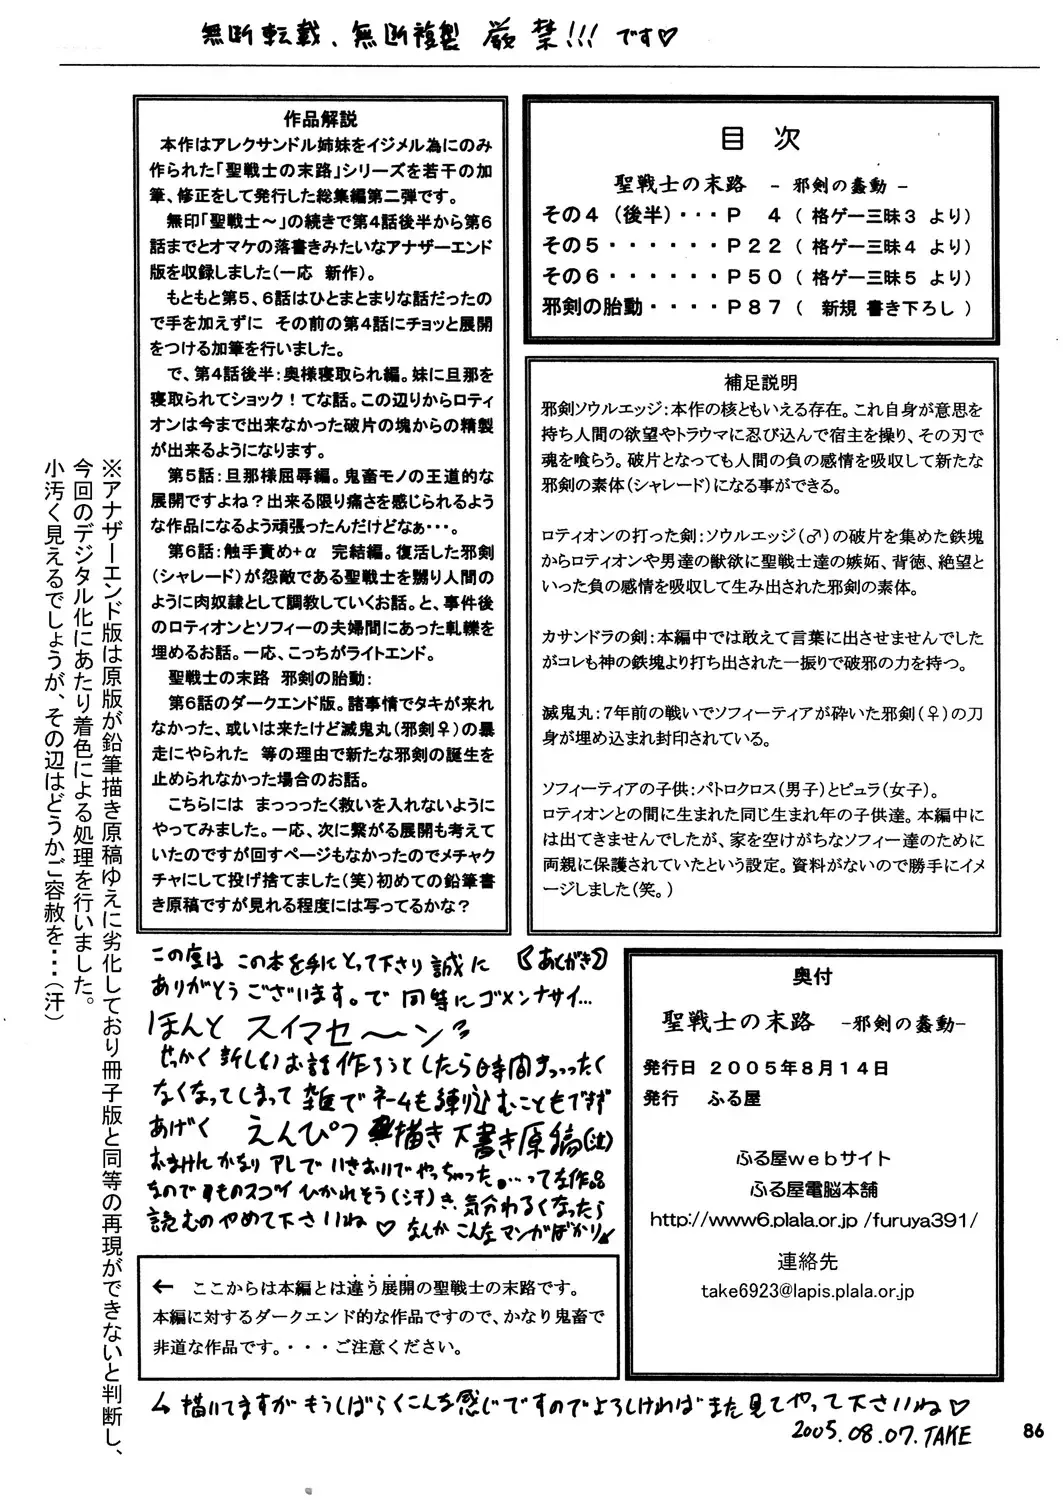 無断転載、無断複製 厳禁!!! です♡
作品解説
本作はアレクサンドル姉妹をイジメル為にのみ
作られた「聖戦士の末路」シリーズを若干の加
筆、修正をして発行した総集編第二弾です。
無印「聖戦士～」の続きで第4話後半から第6
話までとオマケの落書きみたいなアナザーエンド
版を収録しました(一応 新作)。
もともと第5、6話はひとまとまりな話だったの
で手を加えずに その前の第4話にチョッと展開
をつける加筆を行いました。
で、第4話後半:奥様寝取られ編。妹に旦那を
寝取られてショック!てな話。この辺りからロティ
オンは今まで出来なかった破片の塊からの精製
が出来るようになります。
第5話:旦那様屈辱編。鬼畜モノの王道的な
展開ですよね?出来る限り痛さを感じられるよう
な作品になるよう頑張ったんだけどなぁ・・・。
第6話:触手責め+α 完結編。復活した邪剣
(シャレード)が怨敵である聖戦士を嬲り人間の
ように肉奴隷として調教していくお話。と、事件後
のロティオンとソフィーの夫婦間にあった軋轢を
埋めるお話。一応、こっちがライトエンド。
聖戦士の末路 邪剣の胎動:
第6話のダークエンド版。諸事情でタキが来れ
なかった、或いは来たけど滅鬼丸(邪剣♀)の暴
走にやられた 等の理由で新たな邪剣の誕生を
止められなかった場合のお話。
こちらには まっっったく救いを入れないように
やってみました。一応、次に繋がる展開も考えて
いたのですが回すページもなかったのでメチャク
チャにして投げ捨てました(笑)初めての鉛筆書
き原稿ですが見れる程度には写ってるかな?
目 次
聖戦士の末路 - 邪剣の蠢動 -
その4(後半)・・・P 4(格ゲー三昧3 より)
その5・・・・・・P22(格ゲー三昧4 より)
その6・・・・・・P50(格ゲー三昧5 より)
邪剣の胎動・・・・P87( 新規 書き下ろし )
補足説明
邪剣ソウルエッジ:本作の核ともいえる存在。これ自身が意思を
持ち人間の欲望やトラウマに忍び込んで宿主を操り、その刃で
魂を喰らう。破片となっても人間の負の感情を吸収して新たな
邪剣の素体(シャレード)になる事ができる。
ロティオンの打った剣:ソウルエッジ(♂)の破片を集めた鉄塊
からロティオンや男達の獣欲に聖戦士達の嫉妬、背徳、絶望と
いった負の感情を吸収して生み出された邪剣の素体。
カサンドラの剣:本編中では敢えて言葉に出させませんでした
がコレも神の鉄塊より打ち出された一振りで破邪の力を持つ。
滅鬼丸:7年前の戦いでソフィーティアが砕いた邪剣(♀)の刀
身が埋め込まれ封印されている。
ソフィーティアの子供:パトロクロス(男子)とピュラ(女子)。
ロティオンとの間に生まれた同じ生まれ年の子供達。本編中に
は出てきませんでしたが、家を空けがちなソフィー達のために
両親に保護されていたという設定。資料がないので勝手にイメ
ージしました(笑。)
※アナザーエンド版は原版が鉛筆描き原稿ゆえに劣化しており冊子版と同等の再現ができないと判断し、
今回のデジタル化にあたり着色による処理を行いました。
小汚く見えるでしょうが、その辺はどうかご容赦を・・・(汗)
【あとがき】
この度は この本を手にとって下さり 誠に
ありがとうございます。で 同時にゴメンナサイ...
ほんと スイマセ～ン
せっかく新しいお話作ろうとしたら時間まっったく
なくなってしまって 雑でネームも練り込むこともできず
あげく えんぴつ描き下書き原稿(泣)
おまけん かなり アレで いきおいでやっちゃった...って作品
なのです ものスゴイ ひかれそう(汗) き、気分わるくなったら
読むのやめて下さいね ♡ なんか こんなマンガばかり
← ここからは本編とは違う展開の聖戦士の末路です。
本編に対するダークエンド的な作品ですので、かなり鬼畜で
非道な作品です。・・・ご注意ください。
描いてますが もうしばらくこんな感じですのでよろしければまた見てやって下さいね♡
2005.08.07.TAKE
奥付
聖戦士の末路 -邪剣の蠢動-
発行日 2005年8月14日
発行 ふる屋
ふる屋webサイト
ふる屋電脳本舗
http://www6.plala.or.jp /furuya391/
連絡先
take6923@lapis.plala.or.jp
86